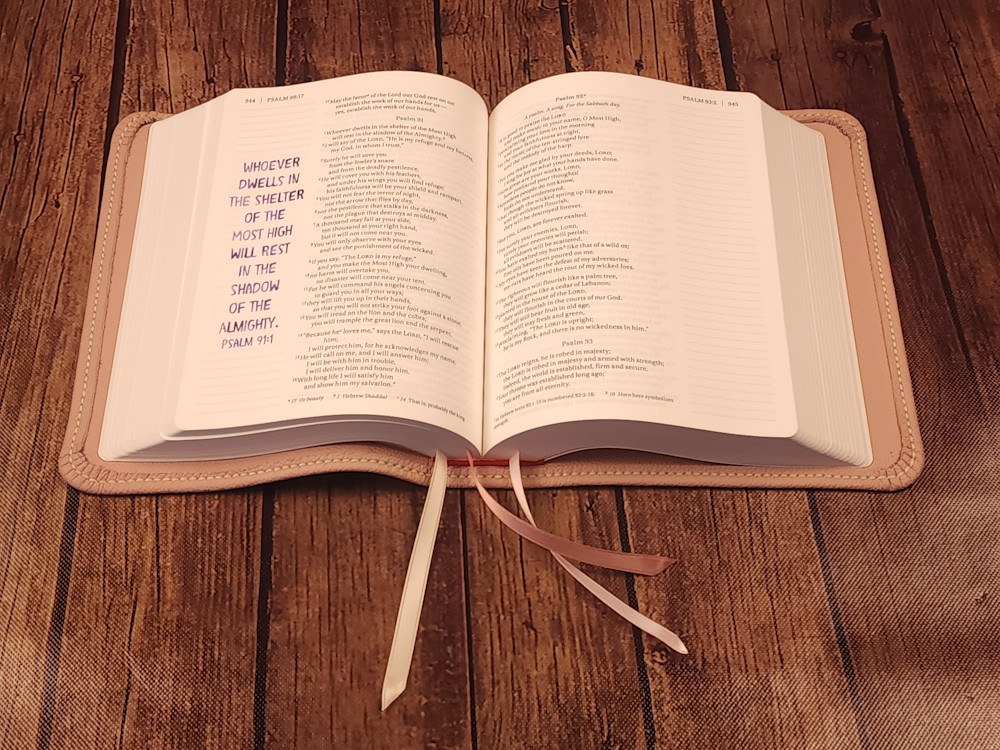 944 | PSALM 90:17
WHOEVER
DWELLS IN
THE SHELTER
OF THE
MOST HIGH
WILL REST
IN THE
SHADOW
OF THE
ALMIGHTY.
PSALM 91:1
17May the favor* of the Lord our God rest on us;
establish the work of our hands for us—
yes, establish the work of our hands.
Psalm 91
1Whoever dwells in the shelter of the Most High
will rest in the shadow of the Almighty.*
2I will say of the LORD, "He is my refuge and my fortress,
my God, in whom I trust."
3Surely he will save you
from the fowler's snare
and from the deadly pestilence.
4He will cover you with his feathers,
and under his wings you will find refuge;
his faithfulness will be your shield and rampart.
5You will not fear the terror of night,
nor the arrow that flies by day,
6nor the pestilence that stalks in the darkness,
nor the plague that destroys at midday.
7A thousand may fall at your side,
ten thousand at your right hand,
but it will not come near you.
8You will only observe with your eyes
and see the punishment of the wicked.
9If you say, "The LORD is my refuge,"
and you make the Most High your dwelling,
10no harm will overtake you,
no disaster will come near your tent.
11For he will command his angels concerning you
to guard you in all your ways;
12they will lift you up in their hands,
so that you will not strike your foot against a stone.
13You will tread on the lion and the cobra;
you will trample the great lion and the serpent.
14"Because he* loves me," says the LORD, "I will rescue
him;
I will protect him, for he acknowledges my name.
15He will call on me, and I will answer him;
I will be with him in trouble,
I will deliver him and honor him.
16With long life I will satisfy him
and show him my salvation."
* 17 Or beauty * 1 Hebrew Shaddai * 14 That is, probably the king
PSALM 93:2 | 945
Psalm 92*
A psalm. A song. For the Sabbath day.
is good to praise the LORD
make music to your name, O Most High,
your love in the morning
faithfulness at night,
the music of the ten-stringed lyre
the melody of the harp.
you make me glad by your deeds, LORD;
for joy at what your hands have done.
great are your works, LORD,
profound your thoughts!
people do not know,
fools do not understand,
though the wicked spring up like grass
all evildoers flourish,
they will be destroyed forever.
you, LORD, are forever exalted.
surely your enemies, LORD,
surely your enemies will perish;
all evildoers will be scattered.
have exalted my horn* like that of a wild ox;
oils have been poured on me.
My eyes have seen the defeat of my adversaries;
my ears have heard the rout of my wicked foes.
The righteous will flourish like a palm tree,
they will grow like a cedar of Lebanon;
planted in the house of the LORD,
they will flourish in the courts of our God.
They will still bear fruit in old age,
they will stay fresh and green,
proclaiming, "The LORD is upright;
he is my Rock, and there is no wickedness in him."
Psalm 93
The LORD reigns, he is robed in majesty;
the LORD is robed in majesty and armed with strength;
indeed, the world is established, firm and secure.
Your throne was established long ago;
you are from all eternity.
In Hebrew texts 92:1-15 is numbered 92:2-16. * 10 Horn here symbolizes
strength.